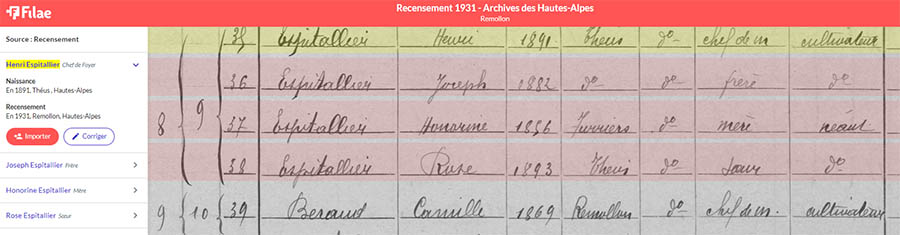 Filae
Recensement 1931 - Archives des Hautes-Alpes
Remollon
Source : Recensement
Henri Espitallier Chef de Foyer
Naissance
En 1891, Théus , Hautes-Alpes
Recensement
En 1931, Remollon, Hautes-Alpes
Importer
Corriger
Joseph Espitallier Frère
Honorine Espitallier Mère
Rose Espitallier Sœur
35 Espitallier Henri 1891 Theus do chef de m. cultivateur
36 Espitallier Joseph 1882 do do frère do
8 9 37 Espitallier Honorine 1856 do mère néant
38 Espitallier Rose 1893 Theus do sœur do
9 10 39 Beraud Camille 1869 Remollon do chef de m. cultivateur